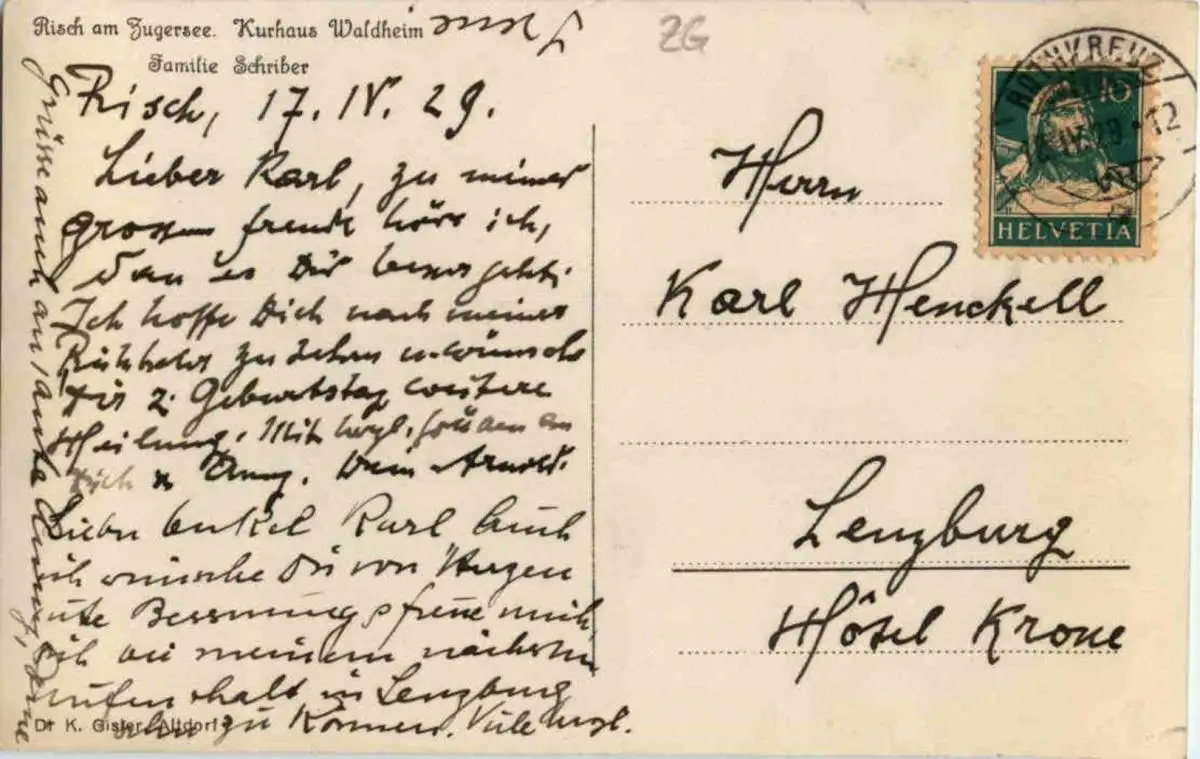 Risch am Zugersee. Kurhaus Waldheim
Familie Schriber
ZG
Risch, 17. IV. 29.
Lieber Karl, zu meiner
grossen freude höre ich,
dass es Dir besser geht.
Ich hoffe Dich nach meiner
Rükkehr zu sehen u. wünsche
Dir z. Geburtstag weitere
Heilung. Mit herzl. Grüssen an
Dich u. Anny. Dein Arnold.
Lieber Onkel Karl Auch
ich wünsche Dir von Herzen
gute Besserung & freue mich,
Dich bei meinem nächsten
Aufenthalt in Lenzburg
sehn zu können. Viele herzl.
Grüsse auch an Tante Anny, Deine
Dr K. Gisler, Altdorf
Herrn
Karl Henckell
Lenzburg
Hôtel Krone
ROTHKREUZ
IV.29.-12
10
HELVETIA